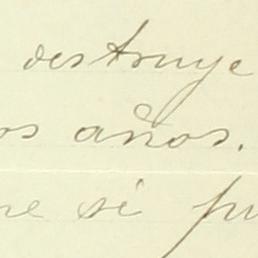 destruye
os años.
ue si pu